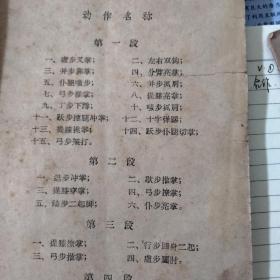 动作名称
第一段
一、虚步叉掌； 二、左右双鈎；
三、并步靠掌； 四、分臂亮掌；
五、仆腿 六、并步抓肩；
七、弓步推掌； 八、提膝亮掌；
九、丁步下蹲； 十、 抓肩；
十一、跃步撩腿冲掌； 十二、十字弹踢；
十三、提膝挑掌； 十四、跃步仆腿切掌；
十五、弓步
第二段
一、退步冲掌； 二、歇步推掌；
三、提膝穿掌； 四、弓步撩掌；
五、 步二起脚； 六、仆步亮掌。
第三段
一、提膝撩掌； 二、行步囬身二起；
三、弓步推掌； 四、虚步
第四段